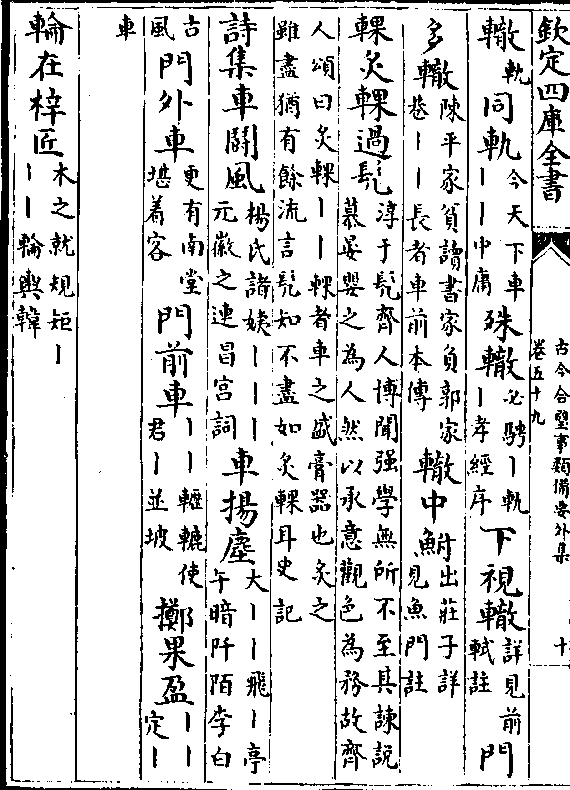 欽定四庫全書
古今合璧事類備要外集
卷五十九
十
轍軌同軌今天下車丨丨中庸殊轍必騁丨軌丨孝經序下視轍詳見前軾註門
多轍陳平家貧讀書家負郭家巷丨丨長者車前本傳轍中鮒出莊子詳見魚門註
輠炙輠過髡淳于髡齊人博聞强學無所不至其諫說慕晏嬰之為人然以承意觀色為務故齊
人頌曰炙輠丨丨輠者車之盛膏器也炙之雖盡猶有餘流言髡知不盡如炙輠耳史記
詩集車鬬風楊氏諸姨丨丨丨元徽之連昌宮詞車揚塵大丨丨飛丨亭午暗阡陌李白
古風門外車更有南堂堪着客門前車丨丨轣轆使君丨並坡擲果盈丨丨定丨
車
輪在梓匠木之就規矩丨丨丨輪輿韓